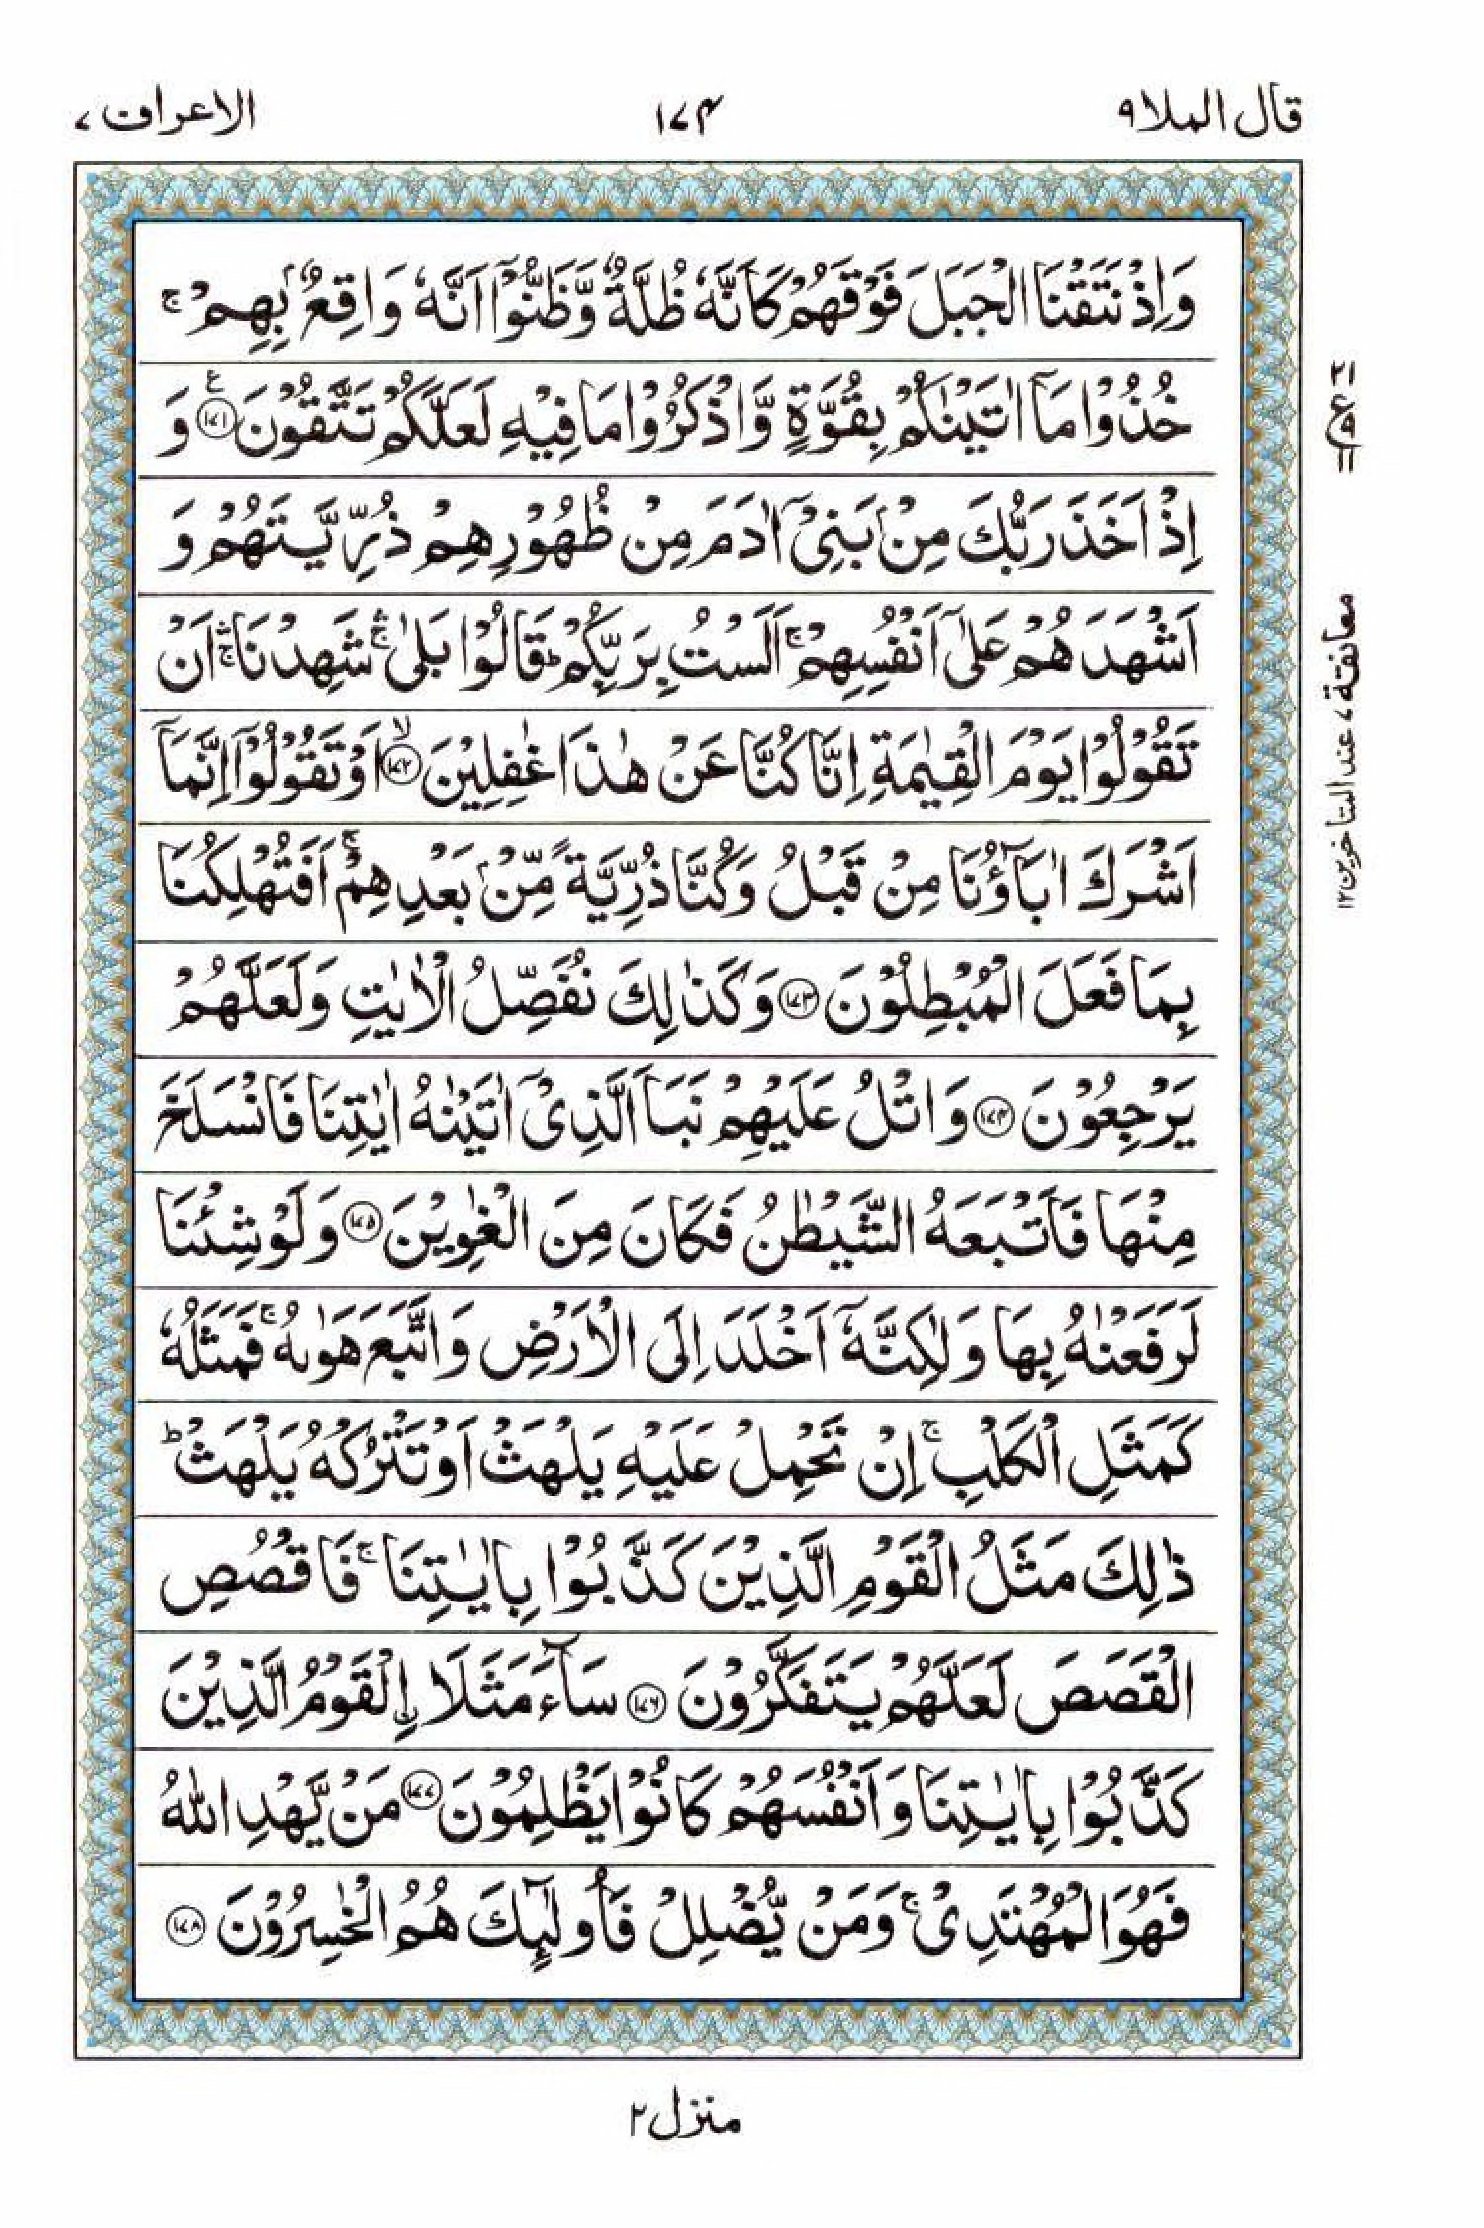 قال الملا ٩
١٧٤
الاعراف ٧
وَاِذْ نَتَقْنَا الْجَبَلَ فَوْقَهُمْ كَاَنَّهٗ ظُلَّةٌ وَّظَنُّوْۤا اَنَّهٗ وَاقِعٌۢ بِهِمْ ۚ
خُذُوْا مَاۤ اٰتَيْنٰكُمْ بِقُوَّةٍ وَّاذْكُرُوْا مَا فِيْهِ لَعَلَّكُمْ تَتَّقُوْنَ ﴿١٧١﴾ ع وَ
اِذْ اَخَذَ رَبُّكَ مِنْۢ بَنِيْۤ اٰدَمَ مِنْ ظُهُوْرِهِمْ ذُرِّيَّتَهُمْ وَ
اَشْهَدَهُمْ عَلٰۤى اَنْفُسِهِمْ ۚ اَلَسْتُ بِرَبِّكُمْ ؕ قَالُوْا بَلٰى ۛۚ شَهِدْنَا ۛۚ اَنْ
تَقُوْلُوْا يَوْمَ الْقِيٰمَةِ اِنَّا كُنَّا عَنْ هٰذَا غٰفِلِيْنَ ۙ﴿١٧٢﴾ اَوْ تَقُوْلُوْۤا اِنَّمَاۤ
اَشْرَكَ اٰبَآؤُنَا مِنْ قَبْلُ وَكُنَّا ذُرِّيَّةً مِّنْۢ بَعْدِهِمْ ۚ اَفَتُهْلِكُنَا
بِمَا فَعَلَ الْمُبْطِلُوْنَ ﴿١٧٣﴾ وَكَذٰلِكَ نُفَصِّلُ الْاٰيٰتِ وَلَعَلَّهُمْ
يَرْجِعُوْنَ ﴿١٧٤﴾ وَاتْلُ عَلَيْهِمْ نَبَاَ الَّذِيْۤ اٰتَيْنٰهُ اٰيٰتِنَا فَانْسَلَخَ
مِنْهَا فَاَتْبَعَهُ الشَّيْطٰنُ فَكَانَ مِنَ الْغٰوِيْنَ ﴿١٧٥﴾ وَلَوْ شِئْنَا
لَرَفَعْنٰهُ بِهَا وَلٰكِنَّهٗۤ اَخْلَدَ اِلَى الْاَرْضِ وَاتَّبَعَ هَوٰىهُ ۚ فَمَثَلُهٗ
كَمَثَلِ الْكَلْبِ ۚ اِنْ تَحْمِلْ عَلَيْهِ يَلْهَثْ اَوْ تَتْرُكْهُ يَلْهَثْ ؕ
ذٰلِكَ مَثَلُ الْقَوْمِ الَّذِيْنَ كَذَّبُوْا بِاٰيٰتِنَا ۚ فَاقْصُصِ
الْقَصَصَ لَعَلَّهُمْ يَتَفَكَّرُوْنَ ﴿١٧٦﴾ سَآءَ مَثَلَا ۨالْقَوْمُ الَّذِيْنَ
كَذَّبُوْا بِاٰيٰتِنَا وَاَنْفُسَهُمْ كَانُوْا يَظْلِمُوْنَ ﴿١٧٧﴾ مَنْ يَّهْدِ اللّٰهُ
فَهُوَ الْمُهْتَدِيْ ۚ وَمَنْ يُّضْلِلْ فَاُولٰٓئِكَ هُمُ الْخٰسِرُوْنَ ﴿١٧٨﴾
معانقة ٧ عند المتاخرين ١٢
منزل ٢